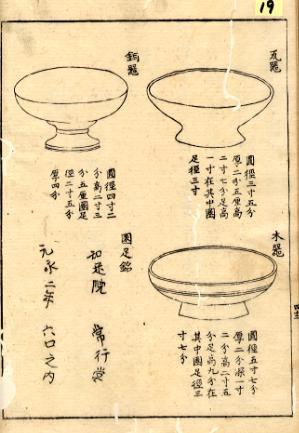 19
瓦器
圓徑三寸五分
厚二分五厘高
二寸七分足高
一寸在其中圓
足徑三寸
銅器
圓徑四寸二
分高二寸三
分五厘圓足
徑二寸五分
厚四分
木器
圓徑五寸七分
厚二分深一寸
二分高二寸五
分足高九分在
其中圓足徑三
寸七分
圓足銘
常行堂
元永二年 六口之內